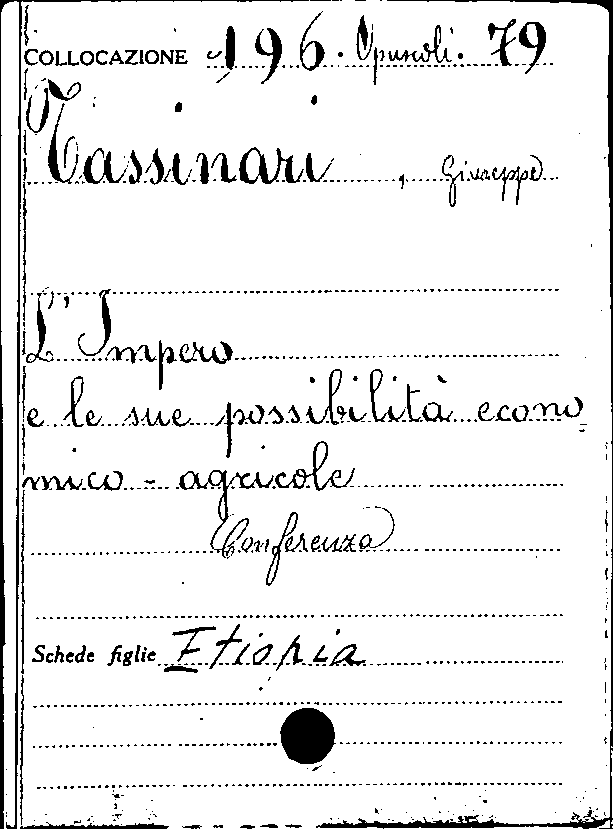 COLLOCAZIONE 196. Opuscoli. 79
Tassinari, Giuseppe
L'Impero
e le sue possibilità econo=
mico - agricole
Conferenza
Schede figlie Etiopia